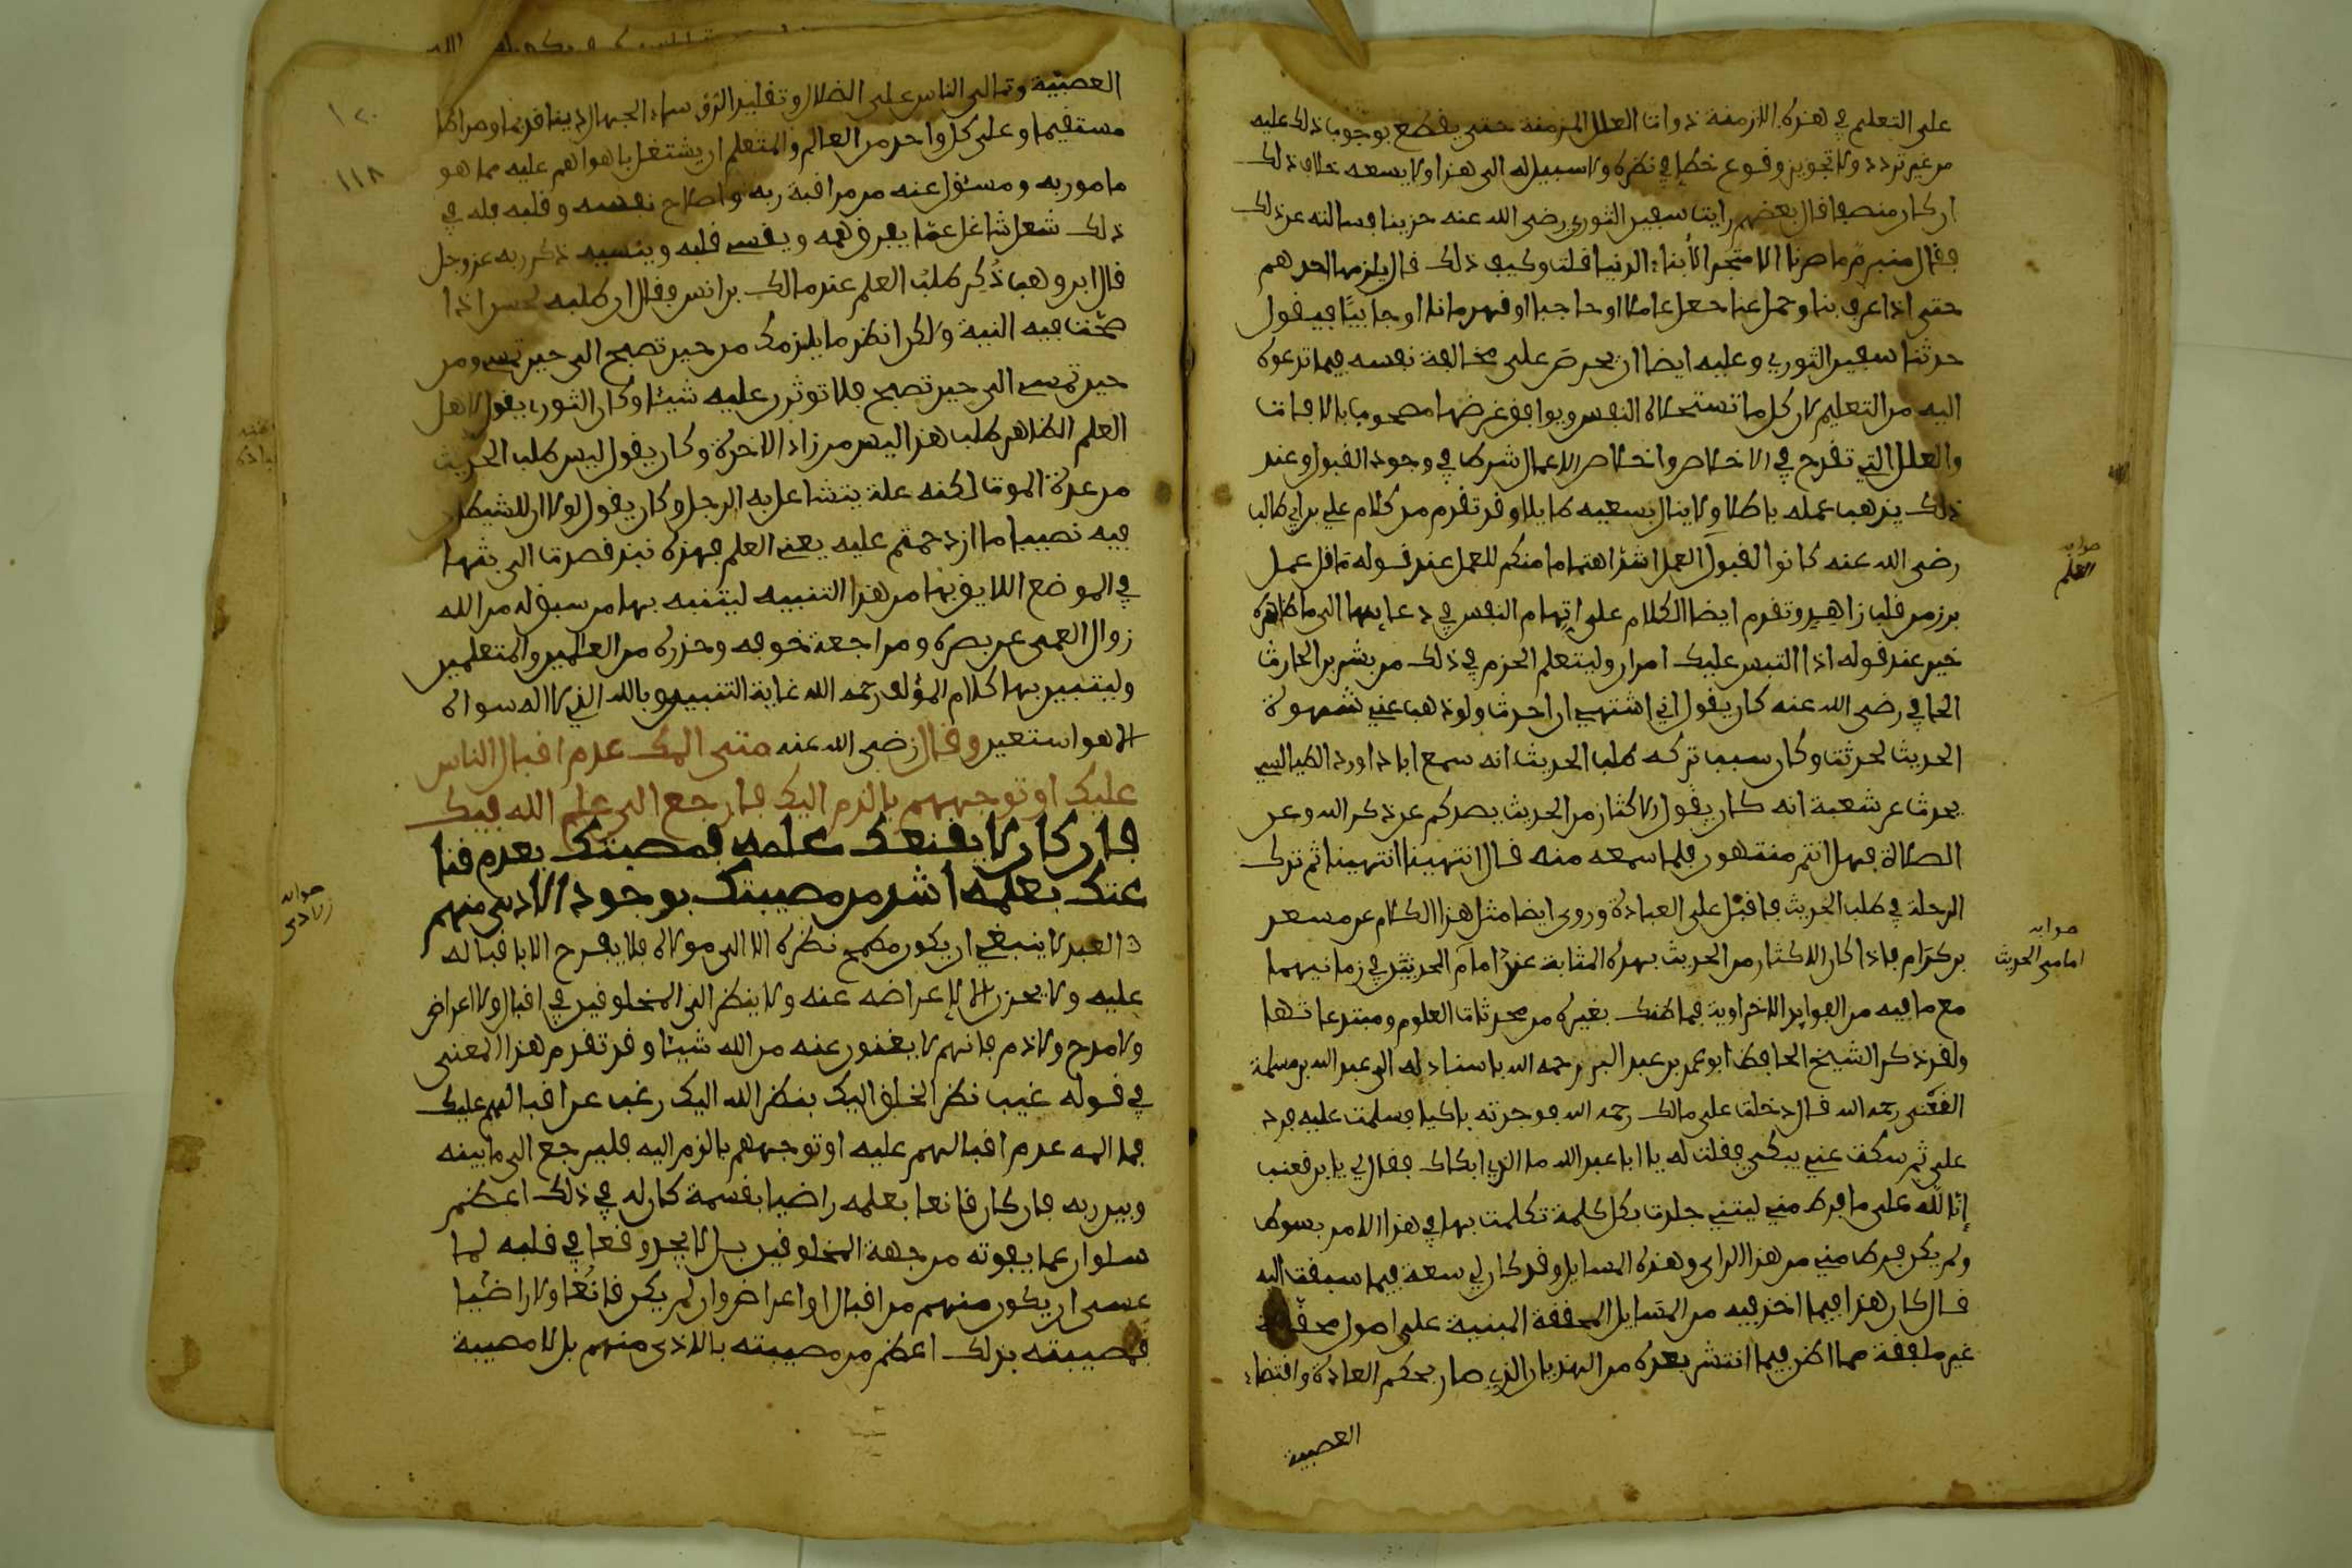 على التعليم في هذه الازمنة ذوات العلل المزمنة حتى يقطع بوجوب ذلك عليه
من غير تردد ولا تجويز وقوع خطإ في نظره ولا سبيل له الى هذا ولا يسعه خلاف ذلك
ان كان منصفا قال بعضهم رايت سفين الثوري رضي الله عنه حزينا فسالته عن ذلك
فقال متبرم ما صرنا الا متجرا لأبناء الدنيا قلت وكيف ذلك قال يلزمنا احدهم
حتى اذا عرف بنا وحمل عنا جعل عاملا او حاجبا او قهرمانا او جابيا فيقول
حدثنا سفين الثوري وعليه ايضا ان يحرص على مخالفة نفسه فيما تدعوه
اليه من التعليم لان كل ما تستحلاه النفس ويوافق غرضها مصحوب بالافات
والعلل التي تقدح في الاخلاص واخلاص الاعمال شرط في وجود القبول وعند
ذلك يذهب عمله باطلا ولا ينال بسعيه طايلا وقد تقدم من كلام علي بن ابي طالب
رضي الله عنه كانوا لقبول العمل اشد اهتماما منكم للعمل عند قوله ما قل عمل
برز من قلب زاهد وتقدم ايضا الكلام على اتهام النفس في دعايها الى ما ظاهره
خير عند قوله اذا التبس عليك امران وليتعلم الحزم في ذلك من بشر بن الحارث
الحافي رضي الله عنه كان يقول اني اشتهي ان احدث ولو ذهب عني شهوة
الحديث لحدثت وكان سبب تركه طلب الحديث انه سمع ابا داوود الطيالسي
يحدث عن شعبة انه كان يقول الاكثار من الحديث يصدكم عن ذكر الله وعن
الصلاة فهل انتم منتهون فلما سمعه منه قال انتهينا انتهينا ثم ترك
الرحلة في طلب الحديث فاقبل على العبادة وروى ايضا مثل هذا الكلام عن مسعر
بن كدام فاذا كان الاكثار من الحديث بهذه المثابة عند امام المحدثين في زمانيهما
مع ما فيه من الفوايد الاخراوية فما ظنك بغيره من محدثات العلوم ومبتدعاتها
ولقد ذكر الشيخ الحافظ ابو عمر بن عبد البر رحمه الله باسناد له الى عبد الله بن مسلمة
القعنبي رحمه الله قال دخلت على مالك رحمه الله فوجدته باكيا فسلمت عليه فرد
علي ثم سكت عني يبكي فقلت له يا ابا عبد الله ما الذي ابكاك فقال لي يا بن قعنب
إنا لله على ما فرط مني ليتني جلدت بكل كلمة تكلمت بها في هذا الامر بسوط
ولم يكن فرط مني من هذا الراي وهذه المسايل وقد كان لي سعة فيما سبقت اليه
قال كان هذا فيما اخذ فيه من المسايل المحققة المبنية على اصول محققة
غير ملفقة مما اظن فيما انتشر بعده من الهذيان الذي صار بحكم العادة واقتضاء
العصبية
صوابه
العلم
صوابه
امامي الحديث
١٢٠
١١٨
العصبية وتمالي الناس على الضلال وتقليد الذي سماه الجهال دينا قويما وصراطا
مستقيما وعلى كل واحد من العالم والمتعلم ان يشتغل باهو اهم عليه مما هو
مامور به ومسئول عنه من مراقبة ربه واصلاح نفسه وقلبه فله في
ذلك شغل شاغل عما يفرق همه ويقسي قلبه وينسيه ذكر ربه عز وجل
قال ابن وهب ذُكِر طلبُ العلم عند مالك بن انس فقال ان طلبه لحسن اذا
صحت فيه النية ولاكن انظر ما يلزمك من حين تصبح الى حين تمسي ومن
حين تمسي الى حين تصبح فلا توثرن عليه شيئا وكان الثوري يقول لاهل
العلم الظاهر طلب هذا ليس من زاد الاخرة وكان يقول ليس طلب الحديث
من عدة الموت لكنه علة يتشاغل به الرجل وكان يقول لولا ان للشيطان
فيه نصيبا ما ازدحمتم عليه يعني العلم فهذه نبذ قصدت الى بثها
في الموضع اللايق بها من هذا التنبيه ليتنبه بها من سبق له من الله
زوال العمى عن بصره ومراجعة خوفه وحذره من العالمين والمتعلمين
وليتبين بها كلام المؤلف رحمه الله غاية التبيين وبالله الذي لا اله سواه
الا هو استعين وقال رضي الله عنه متى المك عدم اقبال الناس
عليك او توجههم بالذم اليك فارجع الى علم الله فيك
فان كان لا يقنعك علمه فمصيبتك بعدم قنا
عتك بعلمه اشد من مصيبتك بوجود الاذى منهم
العبد لا ينبغي ان يكون مطمح نظره الا الى مولاه فلا يفرح الا باقباله
عليه ولا يحزن الا لإعراضه عنه ولا ينظر الى المخلوقين في اقبال ولا اعراض
ولا مدح ولا ذم فانهم لا يغنون عنه من الله شيئا وقد تقدم هذا المعنى
في قوله غيب نظر الخلق اليك بنظر الله اليك وغب عن اقبالهم عليك
فما المه عدم اقبالهم عليه او توجههم بالذم اليه فليرجع الى ما بينه
وبين ربه فان كان قانعا بعلمه راضيا بقسمة كان له في ذلك اعظم
سلوان عما يفوته من جهة المخلوقين بل لا يجد وقعا في قلبه لما
عسى ان يكون منهم من اقبال او اعراض وان لم يكن قانعا ولا راضيا
فمصيبته بذلك اعظم من مصيبته بالاذى منهم بل لا مصيبة
صوابه